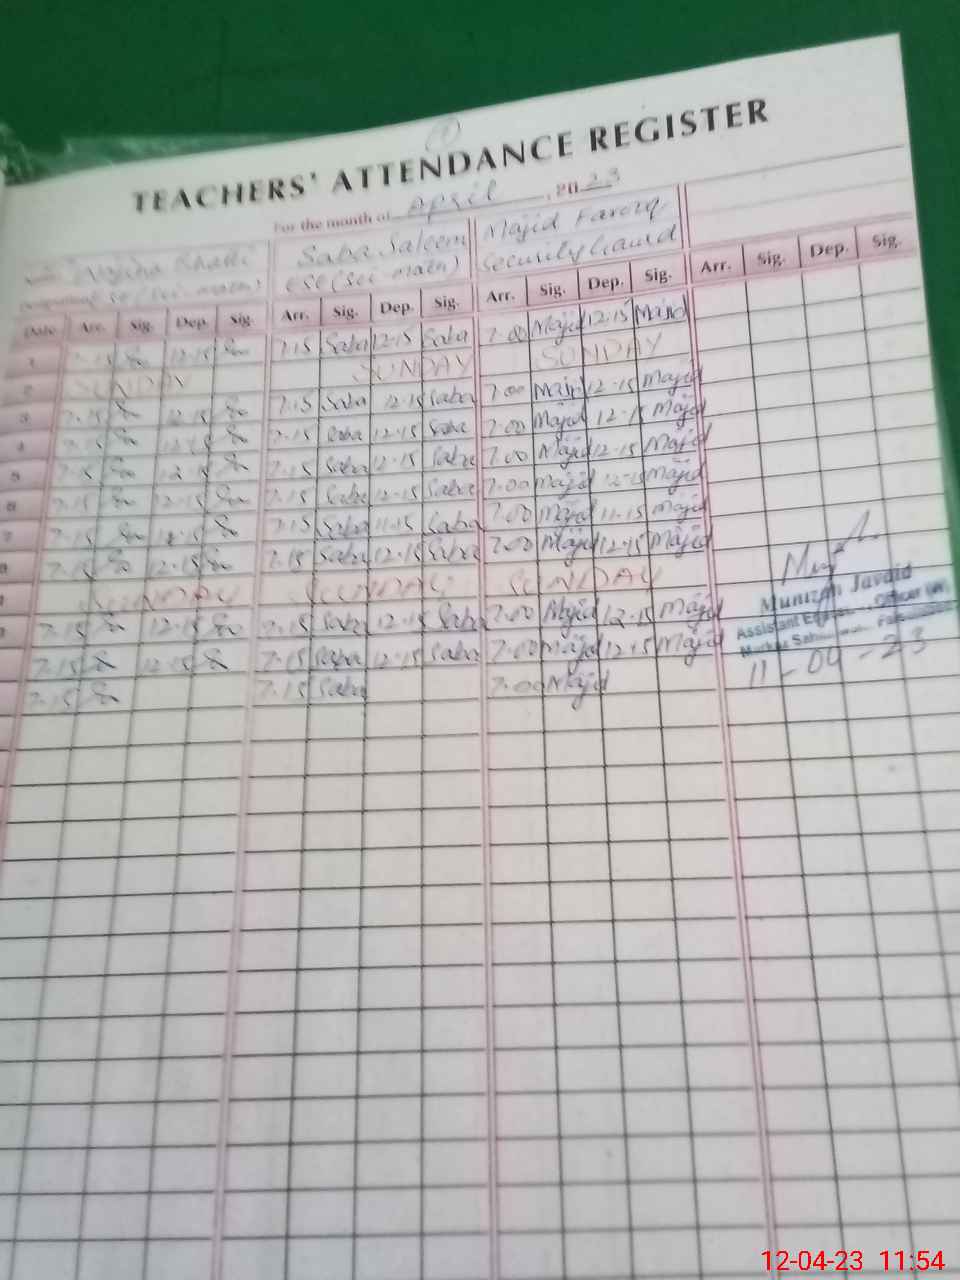 TEACHERS' ATTENDANCE REGISTER
For the month of April, 2023
Najma Bhatti Saba Saleem Majid Farooq
ESE (sci math) ESE (sci math) Security Gaurd
Date Arr. Sig. Dep. Sig. Arr. Sig. Dep. Sig. Arr. Sig. Dep. Sig. Arr. Sig. Dep. Sig.
1 7.15 12.15 7.15 Saba 12.15 Saba 7.00 Majid 12.15 Majid
2 SUNDAY SUNDAY SUNDAY
3 7.15 12.15 7.15 Saba 12.15 Saba 7.00 Majid 12.15 Majid
4 7.15 12.15 7.15 Saba 12.15 Saba 7.00 Majid 12.15 Majid
5 7.15 12.15 7.15 Saba 12.15 Saba 7.00 Majid 12.15 Majid
6 7.15 12.15 7.15 Saba 12.15 Saba 7.00 Majid 12.15 Majid
7 7.15 7.15 Saba 11.15 Saba 7.00 Majid 11.15 Majid
8 7.15 12.15 7.15 Saba 12.15 Saba 7.00 Majid 12.15 Majid
SUNDAY SUNDAY SUNDAY
7.15 12.15 7.15 Saba 12.15 Saba 7.00 Majid 12.15 Majid
7.15 12.15 7.15 Saba 12.15 Saba 7.00 Majid 12.15 Majid
7.15 7.15 Saba 7.00 Majid
Munizah Javaid
Assistant Officer
Markaz
11-04-23
12-04-23 11:54